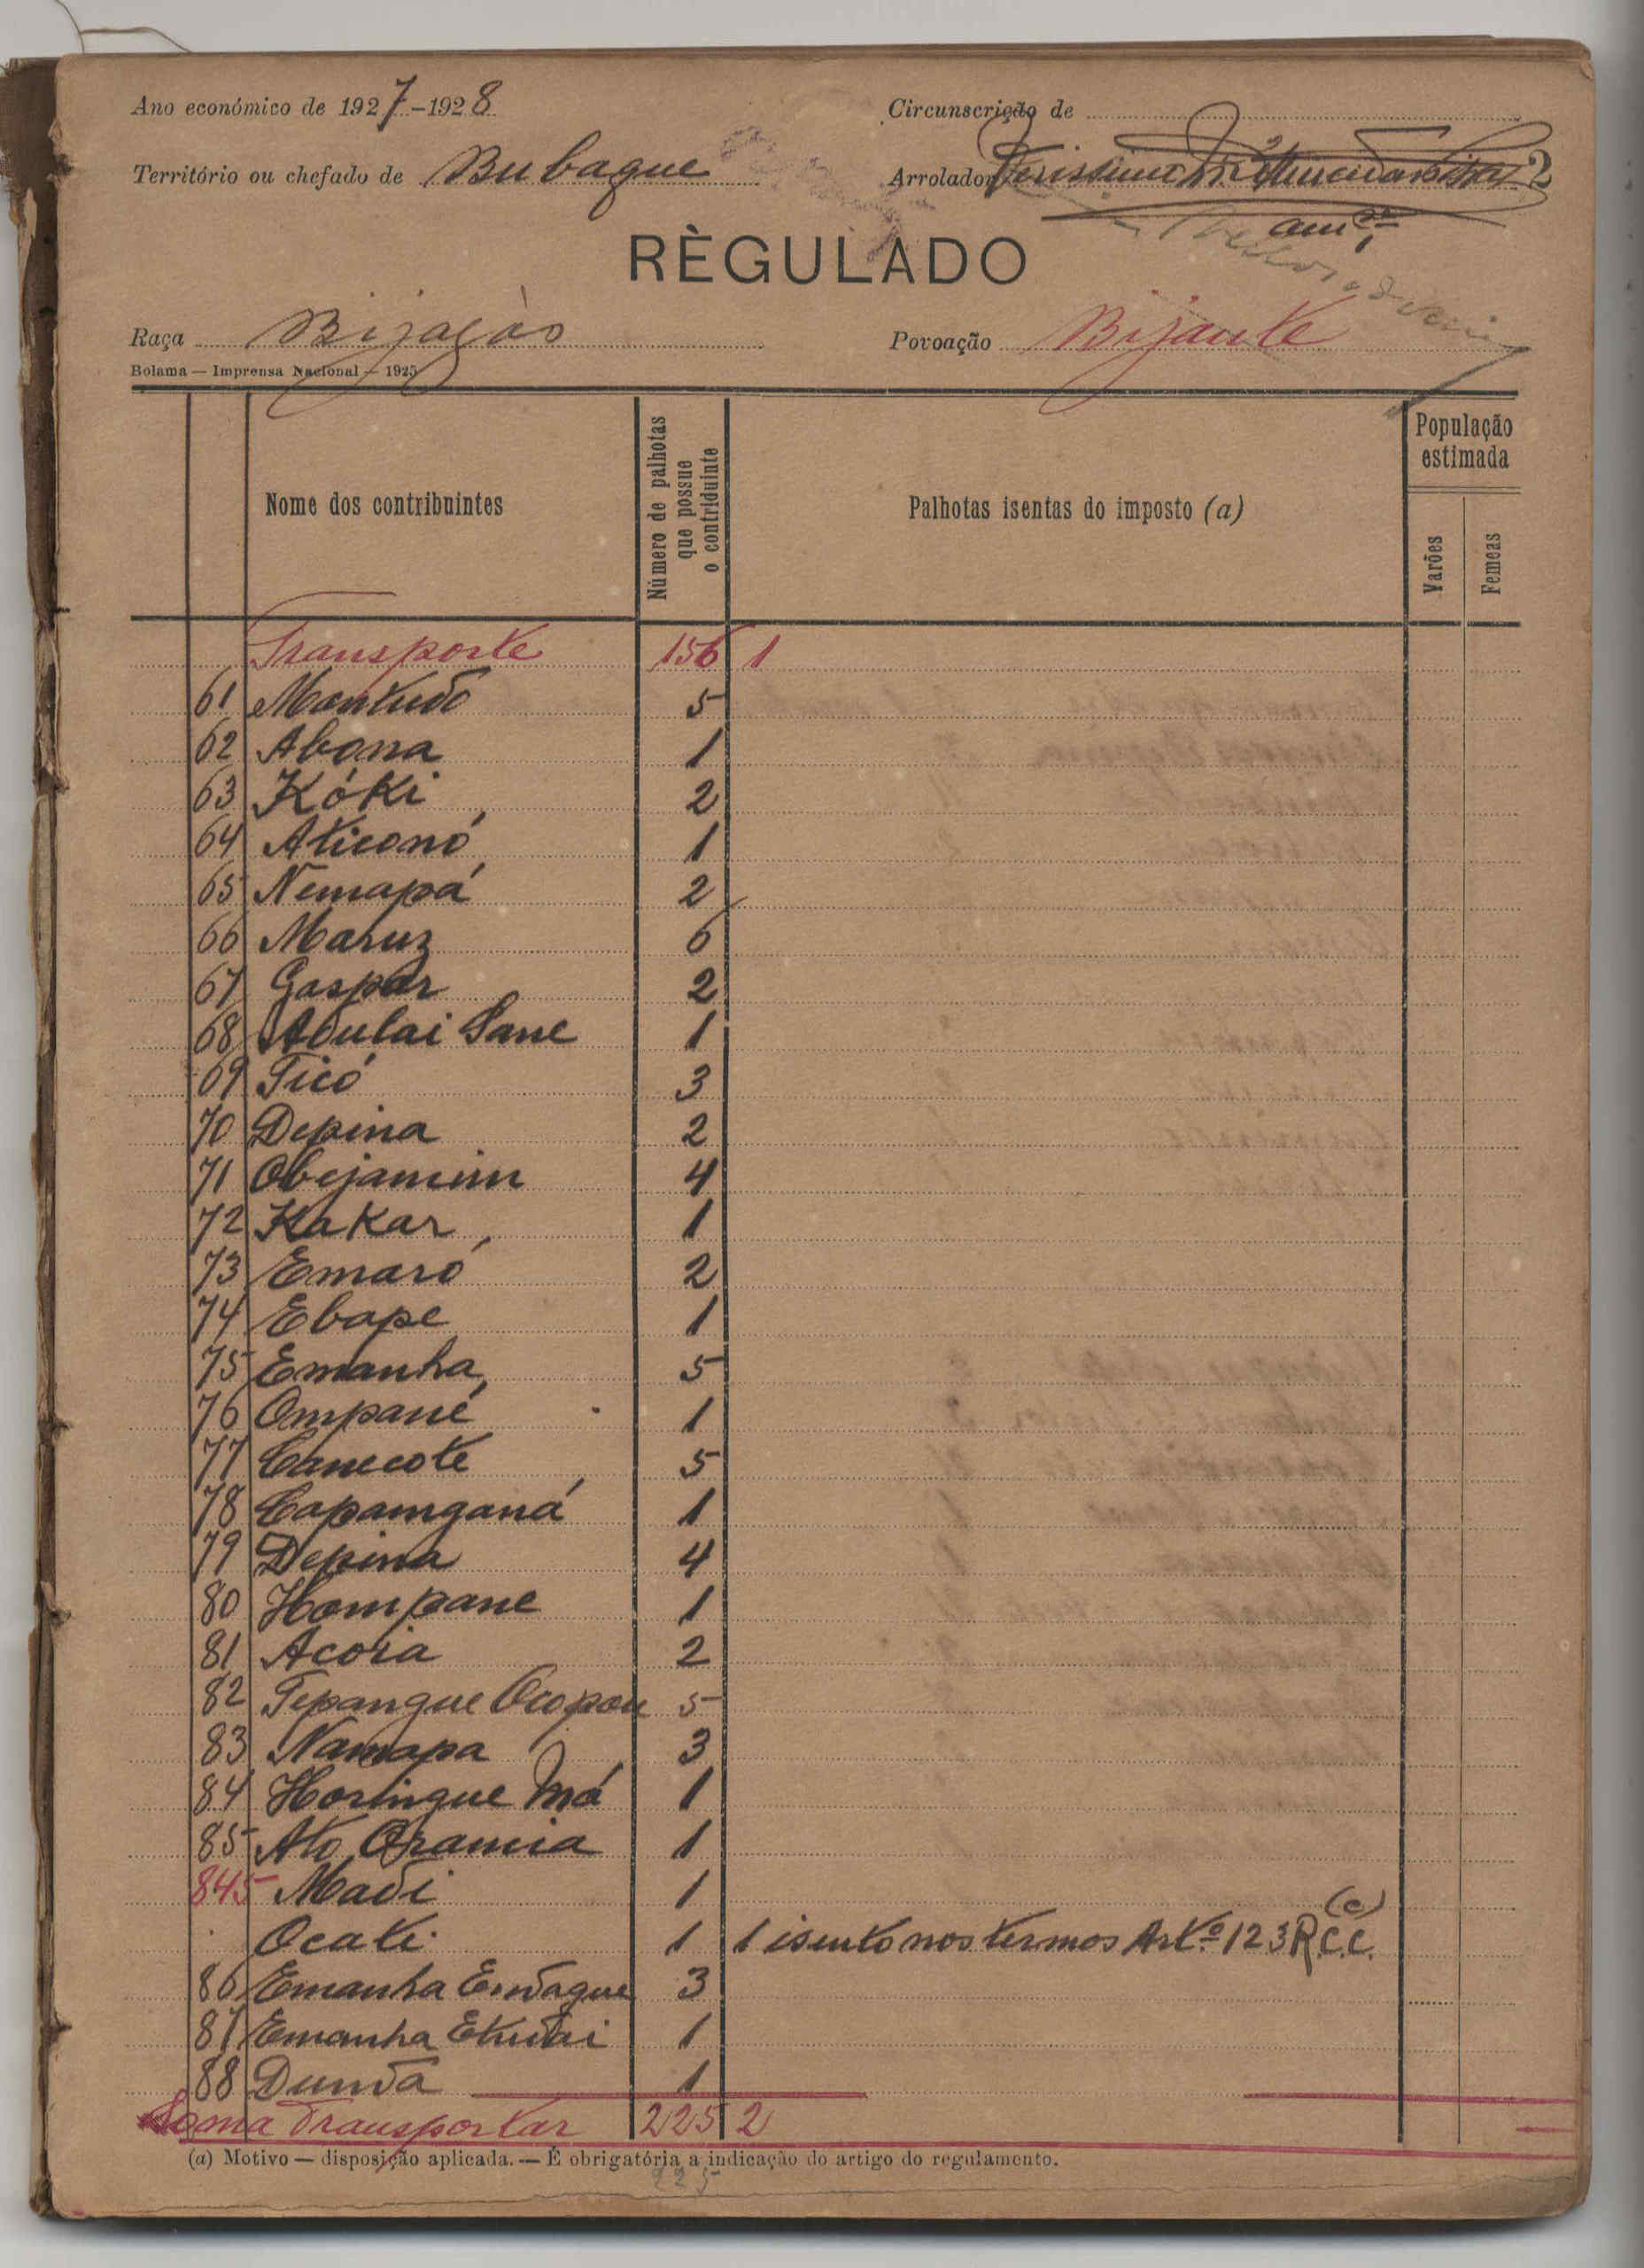 Ano económico de 1927-1928
Circunscrição de
Território ou chefado de Bubaque
Arrolador
2
RÈGULADO
Raça Bijagós
Povoação Bijante
Bolama — Imprensa Nacional — 1925
Nome dos contribuintes
Número de palhotas que possue o contriduinte
Palhotas isentas do imposto (a)
População estimada
Varões
Femeas
Transporte 156 1
61 Montudo 5
62 Abona 1
63 Kóki 2
64 Aticonó 1
65 Nemapá 2
66 Maruz 6
67 Gaspar 2
68 Abulai Sane 1
69 Ticó 3
70 Depina 2
71 Obejamim 4
72 Kakar 1
73 Emaró 2
74 Ebape 1
75 Emanha 5
76 Ompané 1
77 Canecote 5
78 Capamganá 1
79 Depina 4
80 Hompane 1
81 Acoia 2
82 Tepangue 5
83 Namapa 3
84 Horingue Má 1
85 Ato Oramia 1
845 Madi 1
Ocati 1 1 isento nos termos Artº 123 R.C.C.
(c)
86 Emanha Endague 3
87 Emanha Etudai 1
88 Dunda 1
Soma Transportar 225 2
(a) Motivo — disposição aplicada. — É obrigatória a indicação do artigo do regulamento.
225